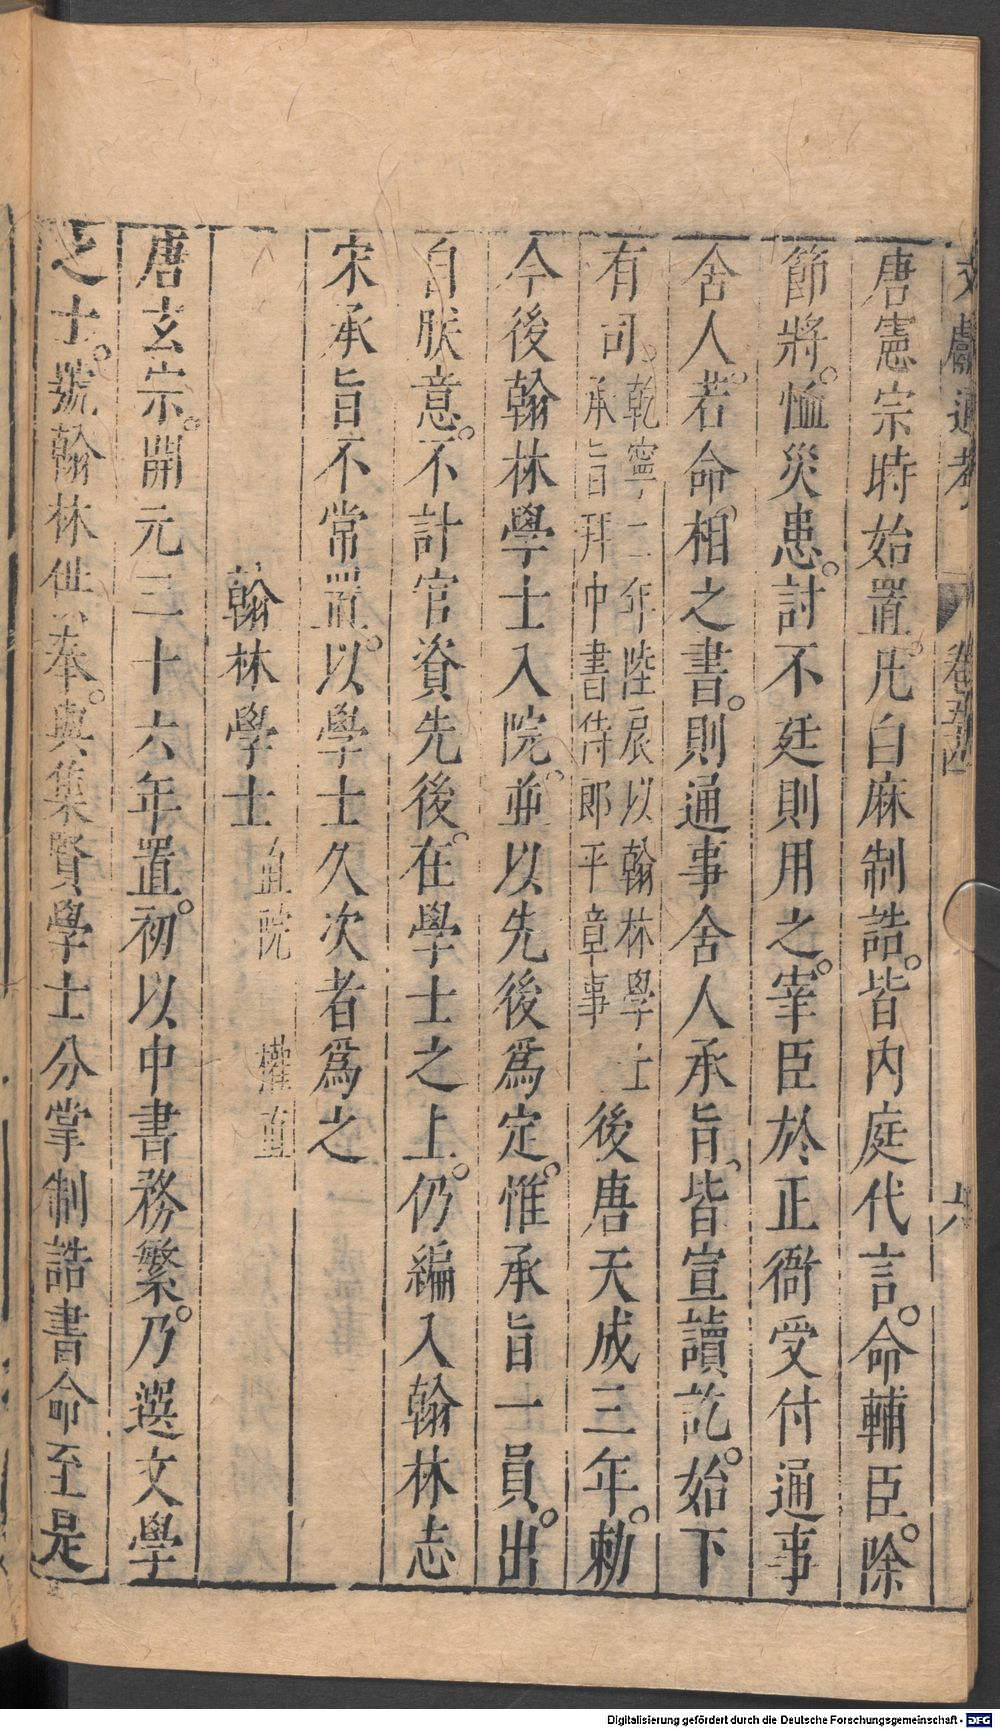 文獻通考 卷五十四 六
唐憲宗時始置。凡白麻制誥。皆内庭代言。命輔臣。除
節將。恤災患。討不廷則用之。宰臣於正衙受付通事
舍人。若命相之書。則通事舍人承旨、皆宣讀訖。始下
有司。乾寧二年陸扆以翰林學士
承旨拜中書侍郎平章事
後唐天成三年。勅
今後翰林學士入院。並以先後爲定。惟承旨一員。出
自朕意。不計官資先後。在學士之上。仍編入翰林志
宋承旨不常置。以學士久次者爲之
翰林學士 直院 權直
唐玄宗。開元二十六年置。初以中書務繁。乃選文學
之士。號翰林供奉。與集賢學士分掌制誥書命至是
Digitalisierung gefördert durch die Deutsche Forschungsgemeinschaft - DFG